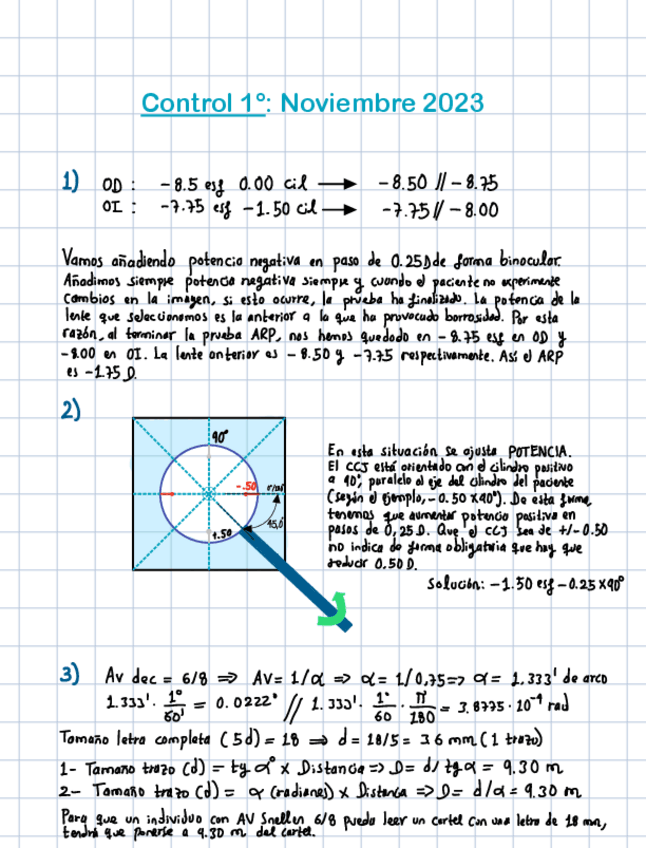 Control 1º: Noviembre 2023
1) OD: -8.5 esf 0.00 cil → -8.50 // -8.75
OI: -7.75 esf -1.50 cil → -7.75 // -8.00
Vamos añadiendo potencia negativa en paso de 0.25D de forma binocular.
Añadimos siempre potencia negativa siempre y cuando el paciente no experimente
cambios en la imagen, si esto ocurre, la prueba ha finalizado. La potencia de la
lente que seleccionemos es la anterior a la que ha provocado borrosidad. Por esta
razón, al terminar la prueba ARP, nos hemos quedado en -8.75 esf en OD y
-8.00 en OI. La lente anterior es -8.50 y -7.75 respectivamente. Así el ARP
es -1.75 D.
2)
90º
-.50
45,0
+.50
En esta situación se ajusta POTENCIA.
El CCJ está orientado con el cilindro positivo
a 90º, paralelo al eje del cilindro del paciente
(según el ejemplo, -0.50 x 90º). De esta forma,
tenemos que aumentar potencia positiva en
pasos de 0,25D. Que el CCJ sea de +/-0.50
no indica de forma obligatoria que hay que
reducir 0.50 D.
Solución: -1.50 esf -0.25 x 90º
3) Av dec = 6/8 ⇒ AV = 1/α ⇒ α = 1/0,75 => α = 1.333' de arco
1.333' · 1º/60' = 0.0222º // 1.333' · 1º/60 · π/180 = 3.8775 · 10⁻⁴ rad
Tamaño letra completa (5d) = 18 ⇒ d = 18/5 = 3.6 mm (1 trazo)
1- Tamaño trazo (d) = tg αº x Distancia => D = d/tg α = 9.30 m
2- Tamaño trazo (d) = α (radianes) x Distancia => D = d/α = 9.30 m
Para que un individuo con AV Snellen 6/8 pueda leer un cartel con una letra de 18 mm,
tendrá que ponerse a 9.30 m del cartel.